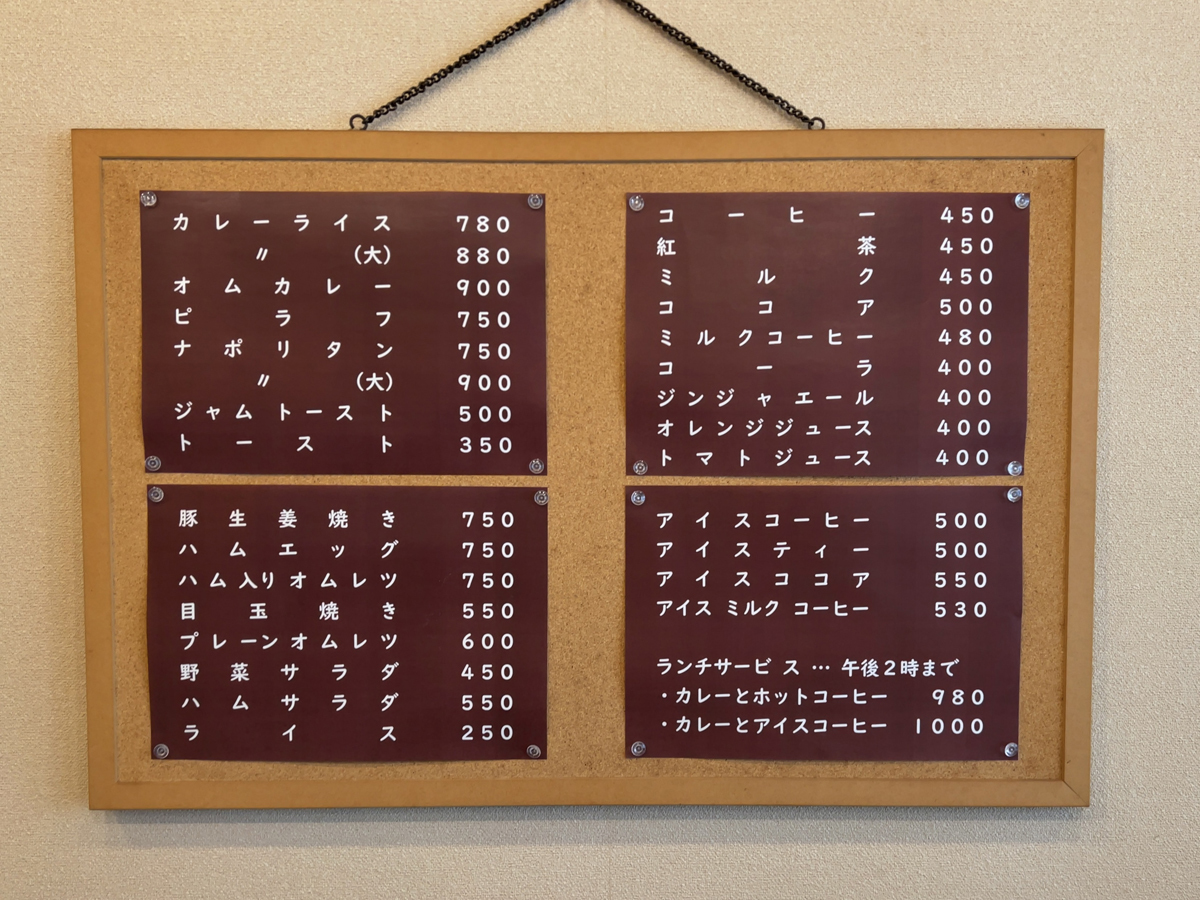 カレーライス 780
〃 (大) 880
オムカレー 900
ピラフ 750
ナポリタン 750
〃 (大) 900
ジャムトースト 500
トースト 350
豚生姜焼き 750
ハムエッグ 750
ハム入りオムレツ 750
目玉焼き 550
プレーンオムレツ 600
野菜サラダ 450
ハムサラダ 550
ライス 250
コーヒー 450
紅茶 450
ミルク 450
ココア 500
ミルクコーヒー 480
コーラ 400
ジンジャエール 400
オレンジジュース 400
トマトジュース 400
アイスコーヒー 500
アイスティー 500
アイスココア 550
アイス ミルク コーヒー 530
ランチサービス … 午後2時まで
・カレーとホットコーヒー 980
・カレーとアイスコーヒー 1000